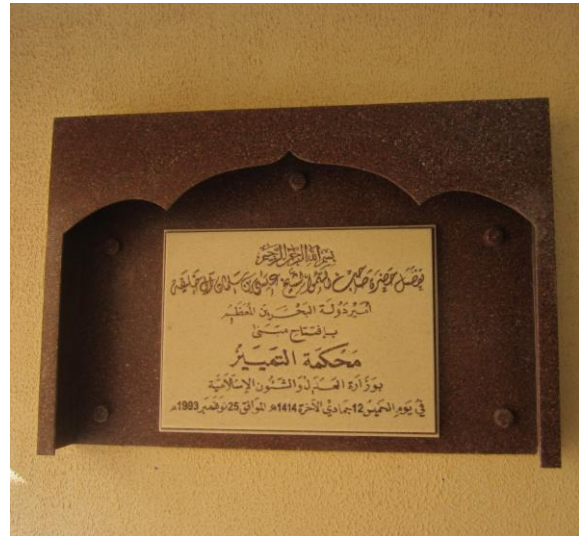 بسم الله الرحمن الرحيم
تفضل حضرة صاحب السمو الشيخ عيسى بن سلمان آل خليفة
أمير دولة البحرين المعظم
بافتتاح مبنى
محكمة التمييز
بوزارة العدل والشئون الإسلامية
في يوم الخميس 12 جمادي الآخرة 1414هـ الموافق 25 نوفمبر 1993م